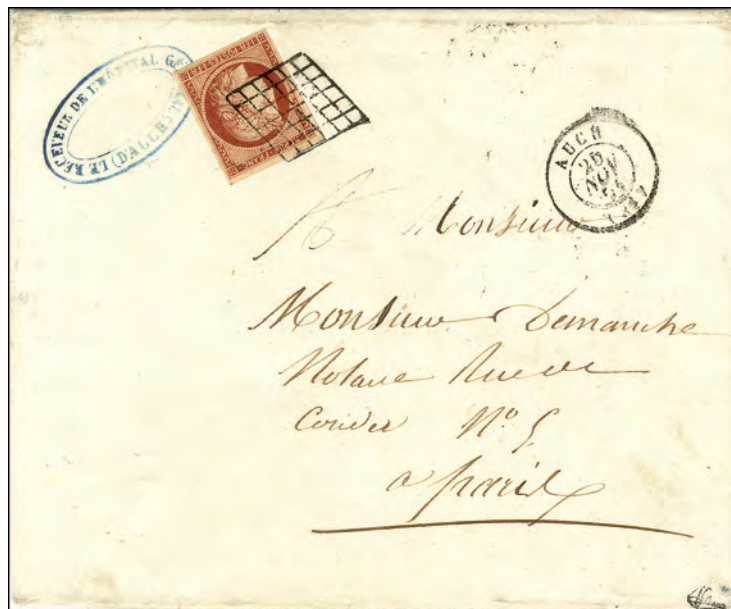 LE RECEVEUR DE L'HÔPITAL (D'AUCH)
AUCH
25
NOV
A Monsieur
Monsieur Demanche
Notaire Rue de
Condé Nº 5
a paris